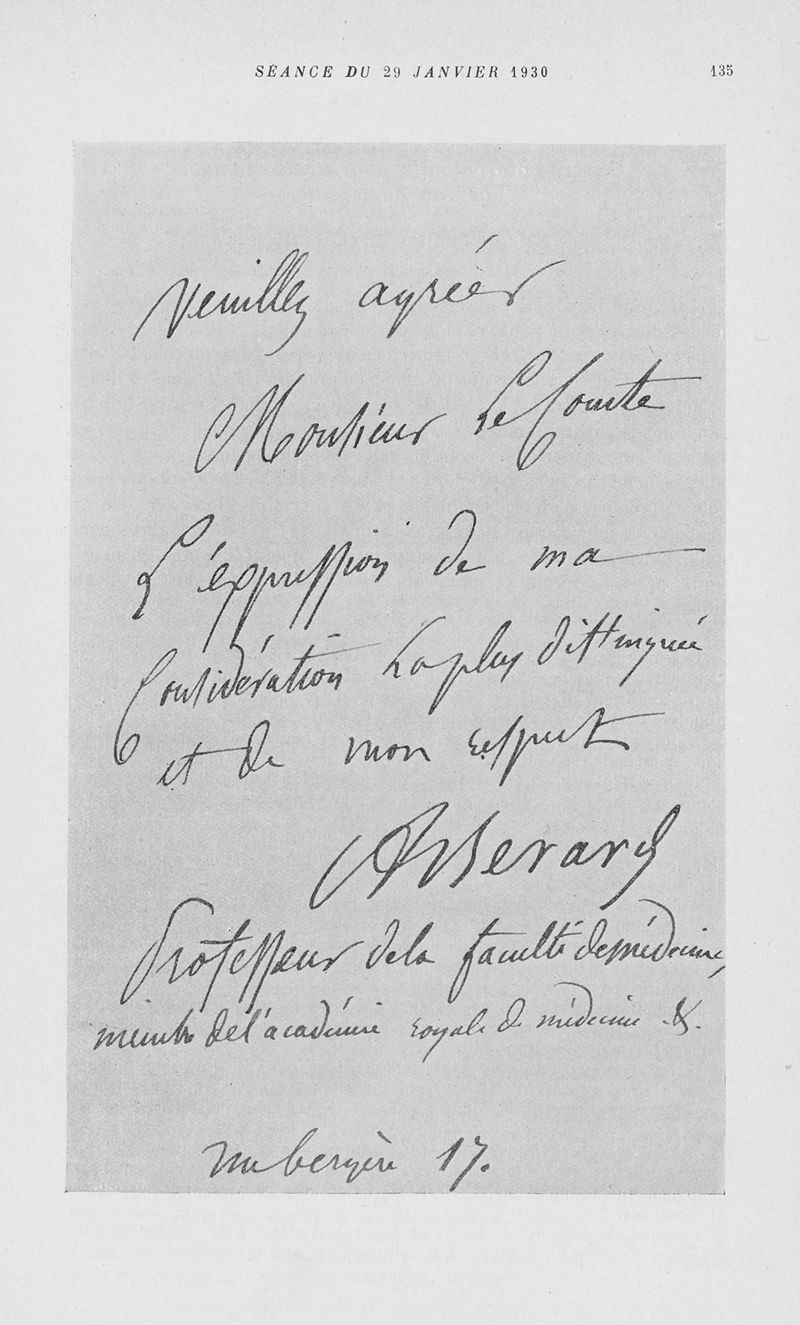 SÉANCE DU 29 JANVIER 1930
135
Veuillez agréér
Monsieur Le Comte
L'éxpression de ma
Considération La plus distinguée
et de mon respect
ABerard
Professeur de la faculté de médecine,
membre de l'académie royale de médecine &.
rue bergère 17.